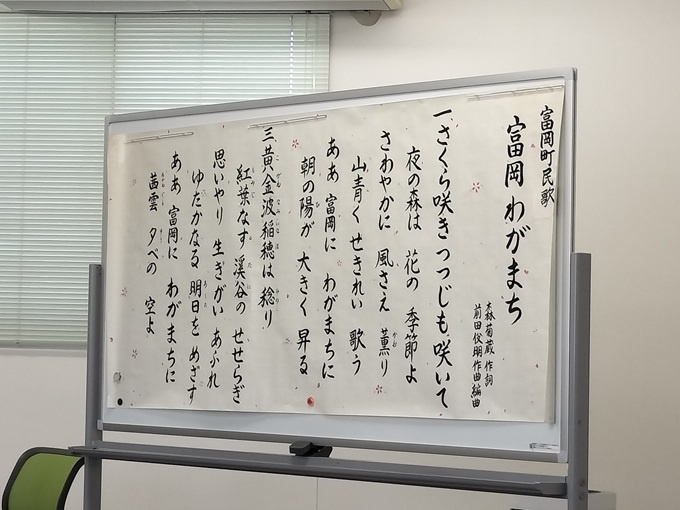 富岡町民歌
富岡 わがまち
森菊蔵 作詞
前田俊明 作曲編曲
一 さくら咲きつつじも咲いて
夜の森は 花の 季節よ
さわやかに 風さえ 薫り
山青く せきれい 歌う
ああ 富岡に わがまちに
朝の陽が 大きく 昇る
三 黄金波稲穂は 稔り
紅葉なす 渓谷の せせらぎ
思いやり 生きがい あふれ
ゆたかなる 明日を めざす
ああ 富岡に わがまちに
茜雲 夕べの 空よ